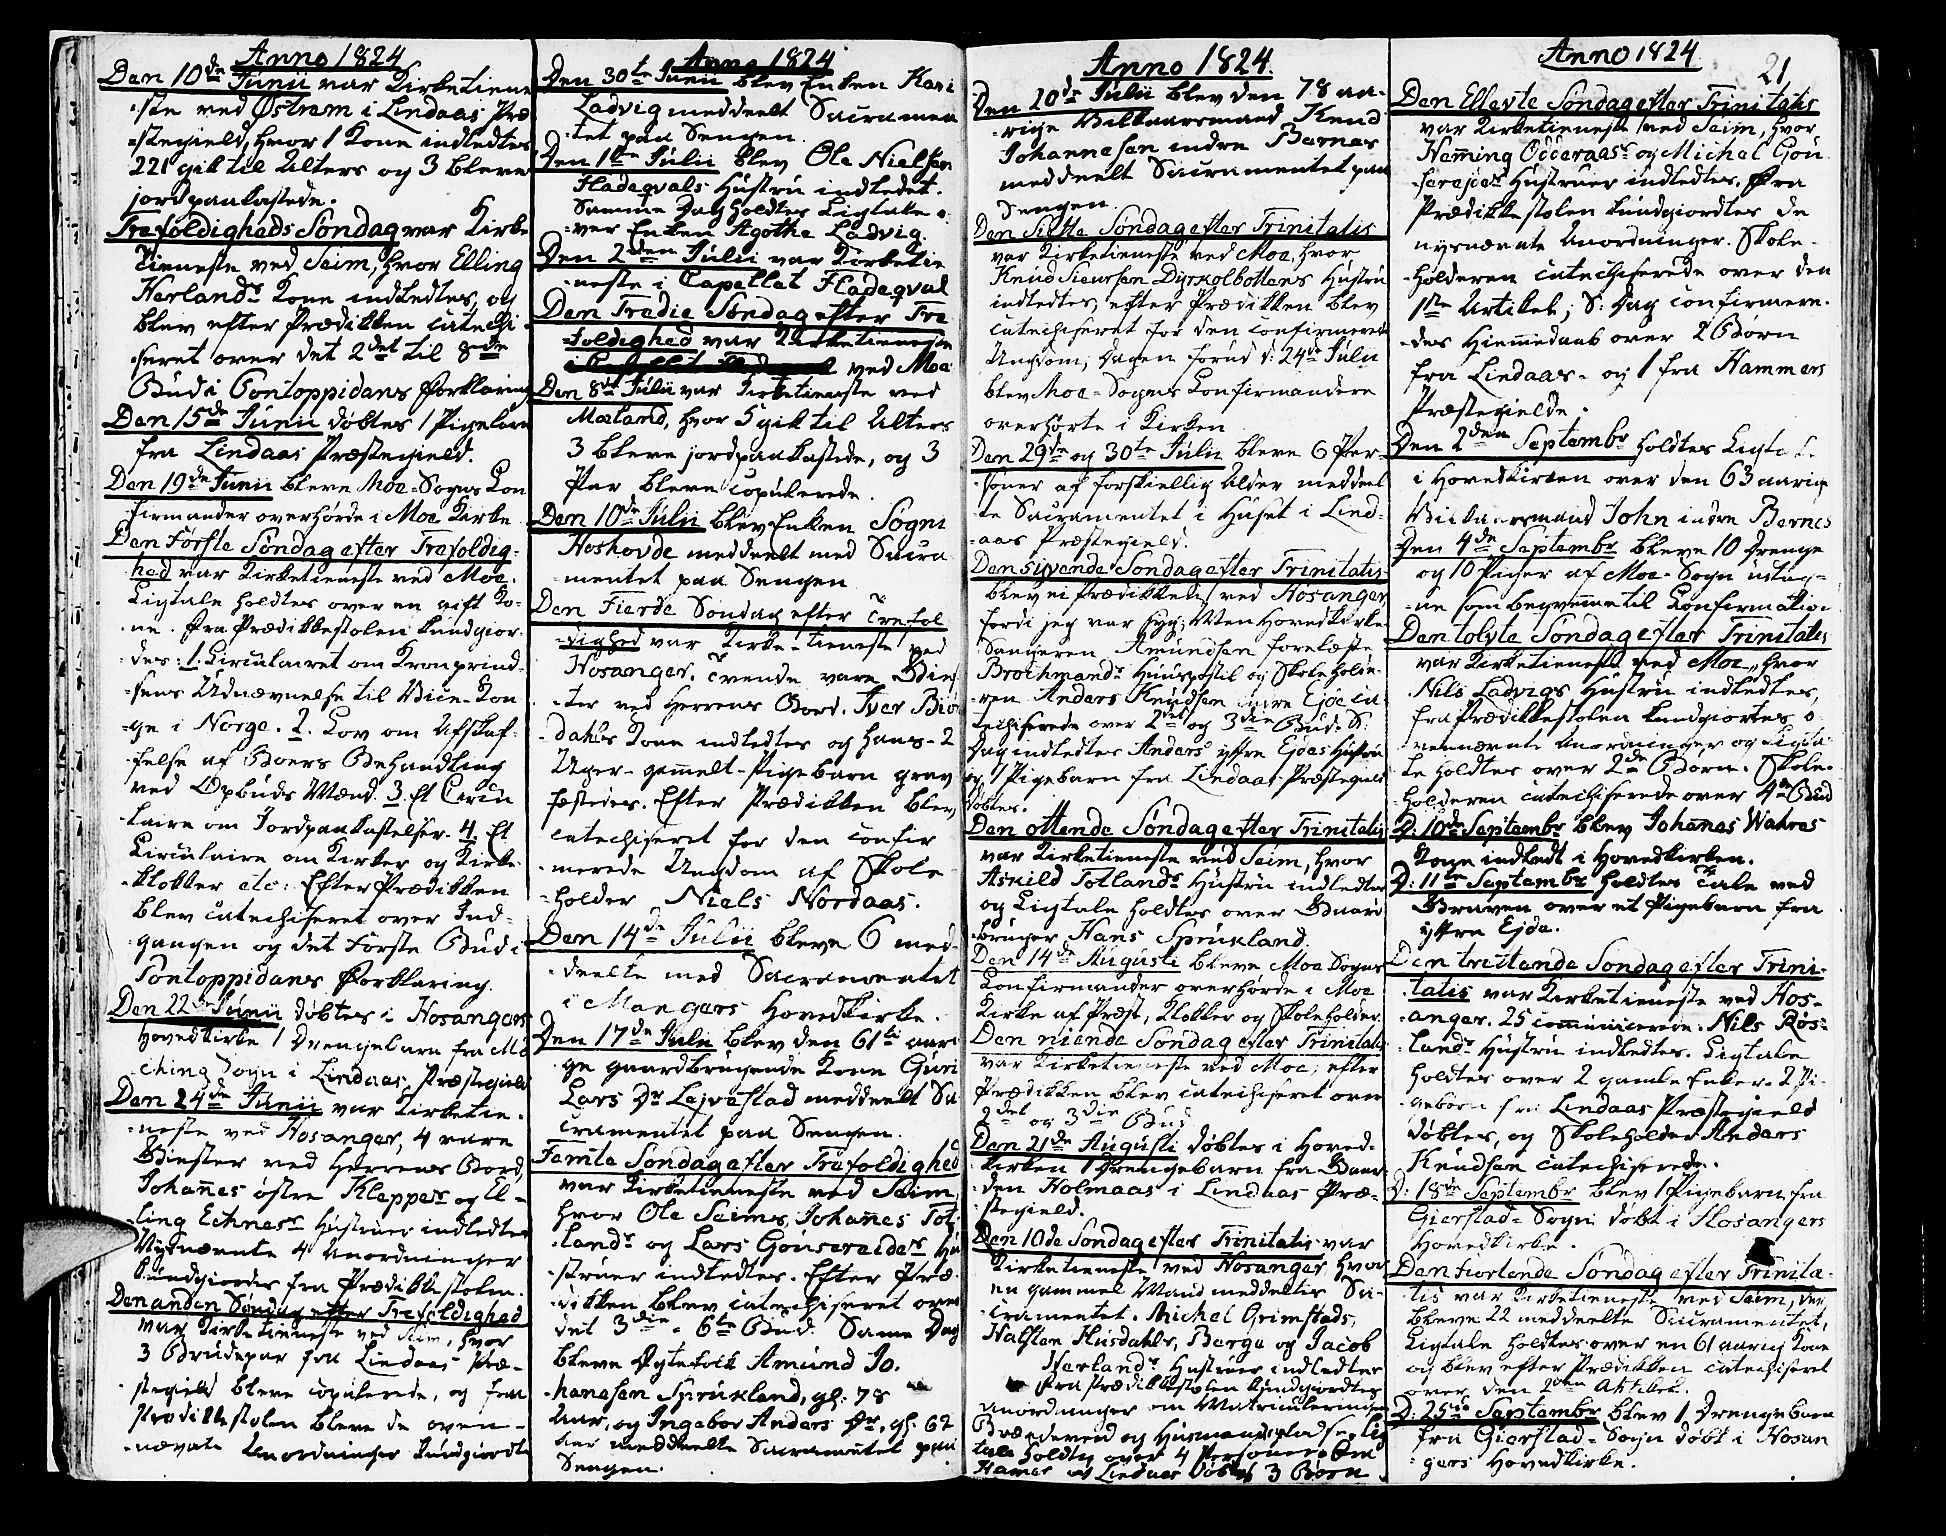 Anno 1824
Den 10de Junii var Kirketiene
ste ved Østrem i Lindaas Præ
stegield, hvor 1 Kone indledtes
221 gik til Alters og 3 bleve
jordpaakastede.
Trefoldigheds Søndag var Kirke
tieneste ved Seim, hvor Elling
Herlands Kone indledtes, og
blev efter Prædikken catechi-
seret over det 2det til 8de
Bud i Pontoppidans Forklaring
Den 15de Junii døbtes 1 Pigebarn
fra Lindaas Præstegield.
Den 19de Junii bleve Moe-Sogns Con
firmander overhørde i Moe Kirke
Den Første Søndag efter Trefoldig-
hed var Kirketieneste ved Moe.
Ligtale holdtes over en gift Ko-
ne. Fra Prædikkestolen kundgior-
des: 1. Circulairet om Kronprind-
sens Udnævnelse til Vice-Kon
ge i Norge. 2. Lov om Afskaf-
felse af Boers Behandling
ved Opbuds Mænd. 3. Et Circu
laire om Jordpaakastelser. 4. Et
Circulaire om Kirker og Kirke-
klokker etc: Efter Prædikken
blev catechiseret over Ind-
gangen og det Første Bud i
Pontoppidans Forklaring.
Den 22de Junii døbtes i Hosangers
Hovedkirke 1 Drengebarn fra My
ching Sogn i Lindaas Præstegield
Den 24de Junii var Kirketie-
neste ved Hosanger, 4 vare
Giester ved Herrens Bord,
Johannes østre Kleppes og El-
ling Echnes Hustruer indledtes
Nysnævnte 4 Anordninger
kundgiordes fra Prædikkestolen.
Den anden Søndag efter Trefoldighed
var Kirketieneste ved Seim, hvor
3 Brudepar fra Lindaas Præ-
stegield bleve copulerede, og fra
Prædikkestolen bleve de oven-
nævnte Anordninger kundgiordte
Anno 1824
Den 30te Junii blev Enken Kari
Ladvig meddeelt Sacramen
tet paa Sengen.
Den 1ste Julii blev Ole Nielsen
Fladeqvals Hustru indledet.
Samme Dag holdtes Ligtale o-
ver Enken Agothe Ladvig.
Den 2den Julii var Kirketie
neste i Capellet Fladeqval
Den Tredie Søndag efter Tre
foldighed var Kirketieneste
ved Moe
Den 8de Julii var Kirketieneste ved
Mæland, hvor 5 gik til Alters
3 bleve jordpaakastede, og 3
Par bleve copulerede.
Den 10de Julii blev Enken Sogni
Hoshovde meddeelt med Sacra
mentet paa Sengen
Den Fierde Søndag efter Trefol
dighed var Kirke-tieneste ved
Hosanger. Trende vare Gies
ter ved Herrens Bord. Iver Biø
Dahls Kone indledtes og hans 2
Uger-gammelt-Pigebarn grav
fæstedes. Efter Prædikken blev
catechiseret for den confir
merede Ungdom af Skole-
holder Niels Nordaas.
Den 14de Julii bleve 6 med-
deelte med Sacramentet
i Mangers Hovedkirke.
Den 17de Julii blev den 61te aari
ge gaardbrugende Kone Guri
Lars Dr Lejvestad meddeelt Sa
cramentet paa Sengen.
Femte Søndag efter Trefoldighed
var Kirketieneste ved Seim,
hvor Ole Seims, Johannes Tot
lands og Lars Gonsereides Hu
struer indledtes. Efter Præ-
dikken blev catechiseret over
det 3die - 6te Bud. Samme Dag
bleve Ægtefolk Amund Jo-
hanesen Sprukland, gl: 78
Aar, og Ingebor Anders Dr, gl: 62
Aar meddeelte Sacramentet paa
Sengen.
Anno 1824
Den 20de Julii blev den 78 aa-
rige Vilkaarsmand Knud
Johannesen indre Bernæs
meddeelt Sacramentet paa
Sengen.
Den Siette Søndag efter Trinitatis
var Kirketieneste ved Moe, hvor
Knud Siursen Dyrkolbottens Hustru
indledtes, efter Prædikken blev
catechiseret for den confirmerede
Ungdom, Dagen forud d: 24de Julii
blev Moe-Sogns Confirmandere
overhørte i Kirken
Den 29de og 30te Julii bleve 6 Per-
soner af forskiellig Alder meddeel
te Sacramentet i Huset i Lind-
aas Præstegield.
Den syvende Søndag efter Trinitatis
blev ei Prædikken ved Hosanger
fordi jeg var syg; Men Hovedkirke
Sangeren Amundsen forelæste
Brochmands Huuspostil og Skoleholde-
ren Anders Knudsen indre Eide ca
techiserede over 2det og 3die Bud. S:
Dag indledtes Anders yttre Ejdes Hustru
og 1 Pigebarn fra Lindaas Præstegield
døbtes.
Den ottende Søndag efter Trinitatis
var Kirketieneste ved Seim, hvor
Askild Totlands Hustru indledtes
og Ligtale holdtes over Gaard
bruger Hans Sprukland.
Den 14de Augusti bleve Moe Sogns
Confirmander overhørde i Moe
Kirke af Præst, Klokker og Skoleholder.
Den niende Søndag efter Trinitatis
var Kirketieneste ved Moe, efter
Prædikken blev catechiseret over
2det og 3die Bud
Den 21de Augusti døbtes i Hoved-
kirken 1 Drengebarn fra Gaar-
den Holmaas i Lindaas Præ-
stegield.
Den 10de Søndag efter Trinitatis var
Kirketieneste ved Hosanger, hvor
en gammel Mand meddeeltes Sa-
cramentet. Michel Grimstads,
Halsten Husdahls, Berge og Jacob
Herlands Hustruer indledtes
Fra Prædikkestolen kundgiordtes
anordninger om Matriculeringen
Brændeved og Husmandspladse Lig
tale holdtes over 4 Personer fra
Hamer og Lindaas døbtes 3 Børn
Anno 1824
21
Den Ellevte Søndag efter Trinitatis
var Kirketieneste ved Seim, hvor
Hemming Odderaas og Michel Gon
serejdes Hustruer indledtes. Fra
Prædikkestolen kundgiordtes de
nysnævnte Anordninger. Skole-
holderen catechiserede over den
1ste Artikel; S: Dag confirmere-
des Hiemmedaab over 2 Børn
fra Lindaas- og 1 fra Hammers
Præstegielde.
Den 2den Septembr holdtes Ligtale
i Hovedkirken over den 63 aarige
Vilkaarsmand John indre Bernes
Den 4de Septembr bleve 10 Drenge
og 10 Piger af Moe-Sogn antag-
ne som beqvemme til Confirmation
Den tolvte Søndag efter Trinitatis
var Kirketieneste ved Moe, hvor
Nils Ladvigs Hustru indledtes,
fra Prædikkestolen kundgiortes o-
vennævnte Anordninger og Ligta-
le holdtes over 2de Børn. Skole-
holderen catechiserede over 4de Bud
D: 10de Septembr blev Johannes Wahres
Kone indledt i Hovedkirken.
D: 11te Septembr holdtes Tale ved
Graven over et Pigebarn fra
yttre Ejde.
Den trettende Søndag efter Trini-
tatis var Kirketieneste ved Hos-
anger. 25 communicerede. Nils Røs-
lands Hustru indledtes. Ligtale
holdtes over 2 gamle Enker. 2 Pi-
gebørn fra Lindaas Præstegield
døbtes, og Skoleholder Anders
Knudsen catechiserede.
D: 18de Septembr blev 1 Pigebarn fra
Gierstad-Sogn døbt i Hosangers
Hovedkirke.
Den fiortende Søndag efter Trinita-
tis var Kirketieneste ved Seim, der
bleve 22 meddeelte Sacramentet,
Ligtale holdtes over en 61 aarig Kone
og blev efter Prædikken catechiseret
over den 2den Artikel.
D: 25de Septembr blev 1 Drengebarn
fra Gierstad-Sogn døbt i Hosan
gers Hovedkirke.